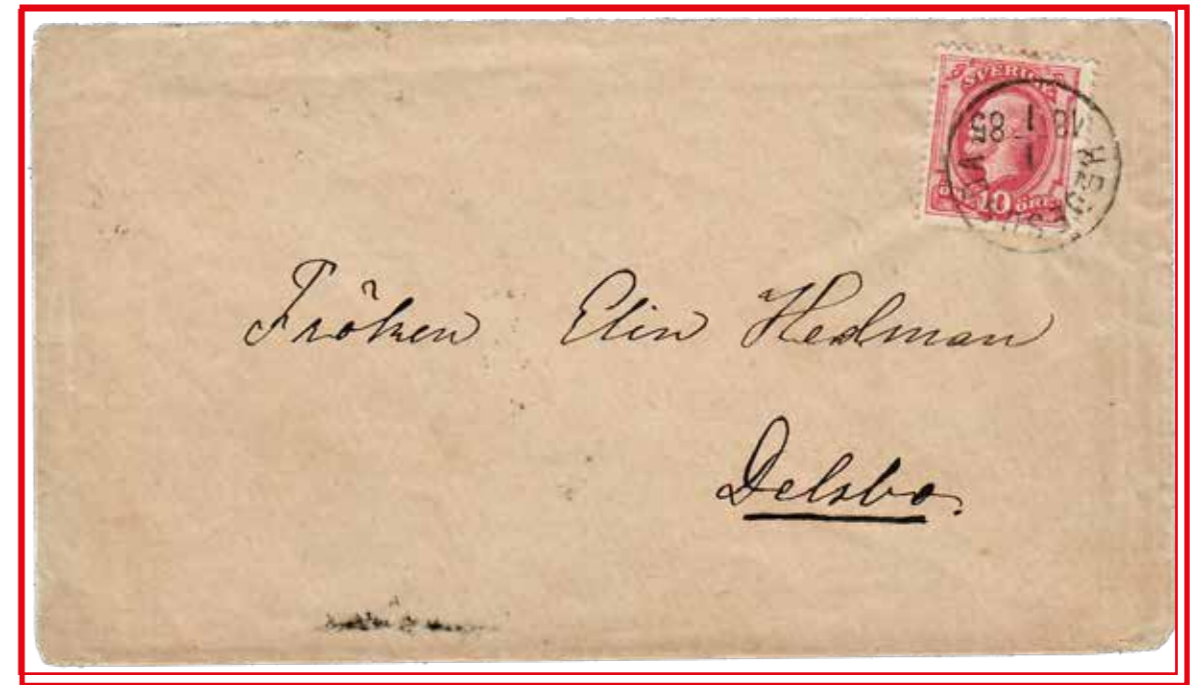 SVERIGE
10 ÖRE
18 1 85
1
Fröken Elin Hedman
Delsbo.